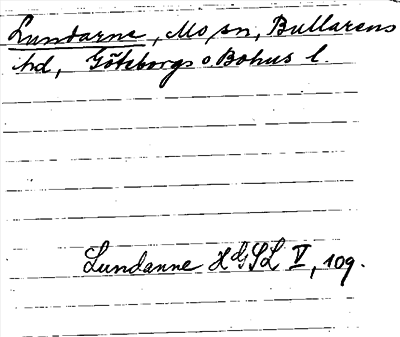 Lundarne, Mo sn, Bullarens
hd, Göteborgs o Bohus l.
Lundanne HdGSL V, 109.